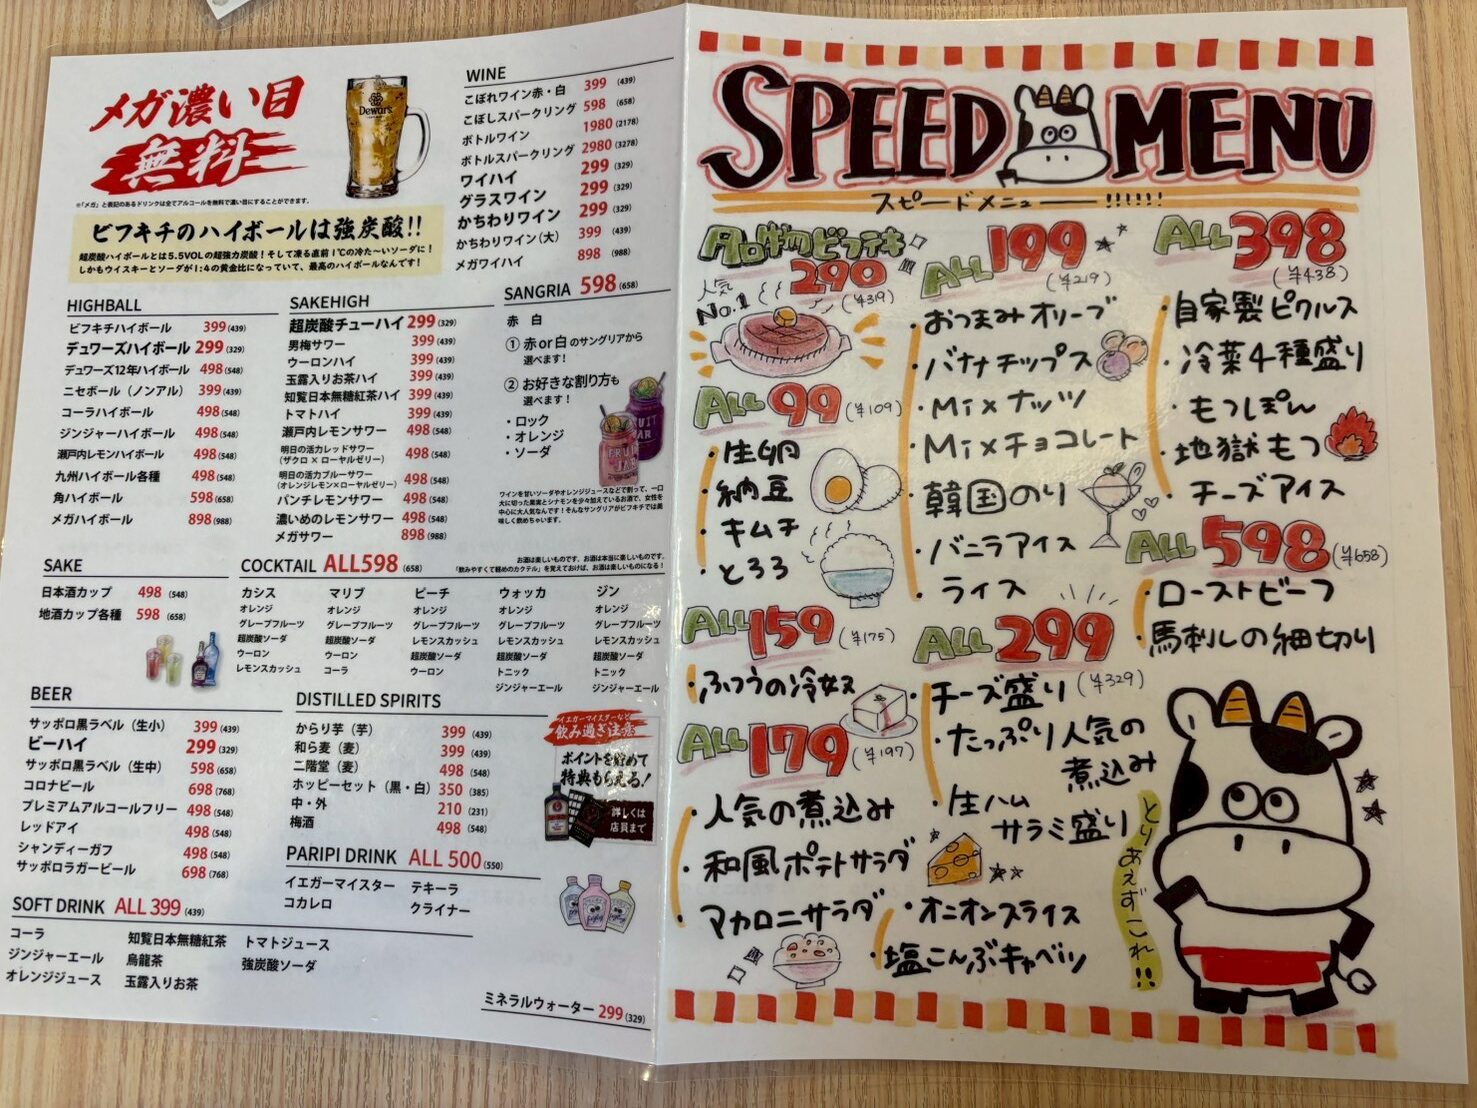 メガ濃い目
無料
Dewar's
※「メガ」と表記のあるドリンクは全てアルコールを無料で濃い目にすることができます。
ビフキチのハイボールは強炭酸!!
超炭酸ハイボールとは5.5VOLの超強力炭酸！そして凍る直前1℃の冷た〜いソーダに！
しかもウイスキーとソーダが1:4の黄金比になっていて、最高のハイボールなんです！
HIGHBALL
ビフキチハイボール 399 (439)
デュワーズハイボール 299 (329)
デュワーズ12年ハイボール 498 (548)
ニセボール（ノンアル） 399 (439)
コーラハイボール 498 (548)
ジンジャーハイボール 498 (548)
瀬戸内レモンハイボール 498 (548)
九州ハイボール各種 498 (548)
角ハイボール 598 (658)
メガハイボール 898 (988)
SAKEHIGH
超炭酸チューハイ 299 (329)
男梅サワー 399 (439)
ウーロンハイ 399 (439)
玉露入りお茶ハイ 399 (439)
知覧日本無糖紅茶ハイ 399 (439)
トマトハイ 399 (439)
瀬戸内レモンサワー 498 (548)
明日の活力レッドサワー
(ザクロ×ローヤルゼリー) 498 (548)
明日の活力ブルーサワー
(オレンジレモン×ローヤルゼリー) 498 (548)
パンチレモンサワー 498 (548)
濃いめのレモンサワー 498 (548)
メガサワー 898 (988)
WINE
こぼれワイン赤・白 399 (439)
こぼしスパークリング 598 (658)
ボトルワイン 1980 (2178)
ボトルスパークリング 2980 (3278)
ワイハイ 299 (329)
グラスワイン 299 (329)
かちわりワイン 299 (329)
かちわりワイン(大) 399 (439)
メガワイハイ 898 (988)
SANGRIA 598 (658)
赤 白
① 赤or白のサングリアから
選べます！
② お好きな割り方も
選べます！
・ロック
・オレンジ
・ソーダ
FRUIT JAR
ワインを甘いソーダやオレンジジュースなどで割って、一口
大に切った果実とシナモンを少々加えているお酒で、女性を
中心に大人気なんです！そんなサングリアがビフキチでは美
味しく飲めちゃいます。
SAKE
日本酒カップ 498 (548)
地酒カップ各種 598 (658)
COCKTAIL ALL598 (658)
お酒は楽しいものです。お酒は本当に楽しいものです。
「飲みやすくて軽めのカクテル」を覚えておけば、お酒は楽しいものになる！
カシス マリブ ピーチ ウォッカ ジン
オレンジ オレンジ オレンジ オレンジ オレンジ
グレープフルーツ グレープフルーツ グレープフルーツ グレープフルーツ グレープフルーツ
超炭酸ソーダ 超炭酸ソーダ レモンスカッシュ レモンスカッシュ レモンスカッシュ
ウーロン ウーロン 超炭酸ソーダ 超炭酸ソーダ 超炭酸ソーダ
レモンスカッシュ コーラ ウーロン トニック トニック
ジンジャーエール ジンジャーエール
BEER
サッポロ黒ラベル（生小） 399 (439)
ビーハイ 299 (329)
サッポロ黒ラベル（生中） 598 (658)
コロナビール 698 (768)
プレミアムアルコールフリー 498 (548)
レッドアイ 498 (548)
シャンディーガフ 498 (548)
サッポロラガービール 698 (768)
DISTILLED SPIRITS
からり芋（芋） 399 (439)
和ら麦（麦） 399 (439)
二階堂（麦） 498 (548)
ホッピーセット（黒・白） 350 (385)
中・外 210 (231)
梅酒 498 (548)
イエガーマイスターなど
飲み過ぎ注意
ポイントを貯めて
特典もらえる！
詳しくは
店員まで
PARIPI DRINK ALL 500 (550)
イエガーマイスター テキーラ
コカレロ クライナー
SOFT DRINK ALL 399 (439)
コーラ 知覧日本無糖紅茶 トマトジュース
ジンジャーエール 烏龍茶 強炭酸ソーダ
オレンジジュース 玉露入りお茶
ミネラルウォーター 299 (329)
SPEED MENU
スピードメニュー!!!!!!
名物ビフテキ
290
(¥319)
人気
No.1
ALL 99 (¥109)
・生卵
・納豆
・キムチ
・とろろ
ALL 159 (¥175)
・ふつうの冷奴
ALL 179 (¥197)
・人気の煮込み
・和風ポテトサラダ
・マカロニサラダ
ALL 199
(¥219)
・おつまみオリーブ
・バナナチップス
・Mixナッツ
・Mixチョコレート
・韓国のり
・バニラアイス
・ライス
ALL 299
(¥329)
・チーズ盛り
・たっぷり人気の
煮込み
・生ハム
サラミ盛り
・オニオンスライス
・塩こんぶキャベツ
ALL 398
(¥438)
・自家製ピクルス
・冷菜4種盛り
・もつぽん
・地獄もつ
・チーズアイス
ALL 598 (¥658)
・ローストビーフ
・馬刺しの細切り
とりあえずこれ!!